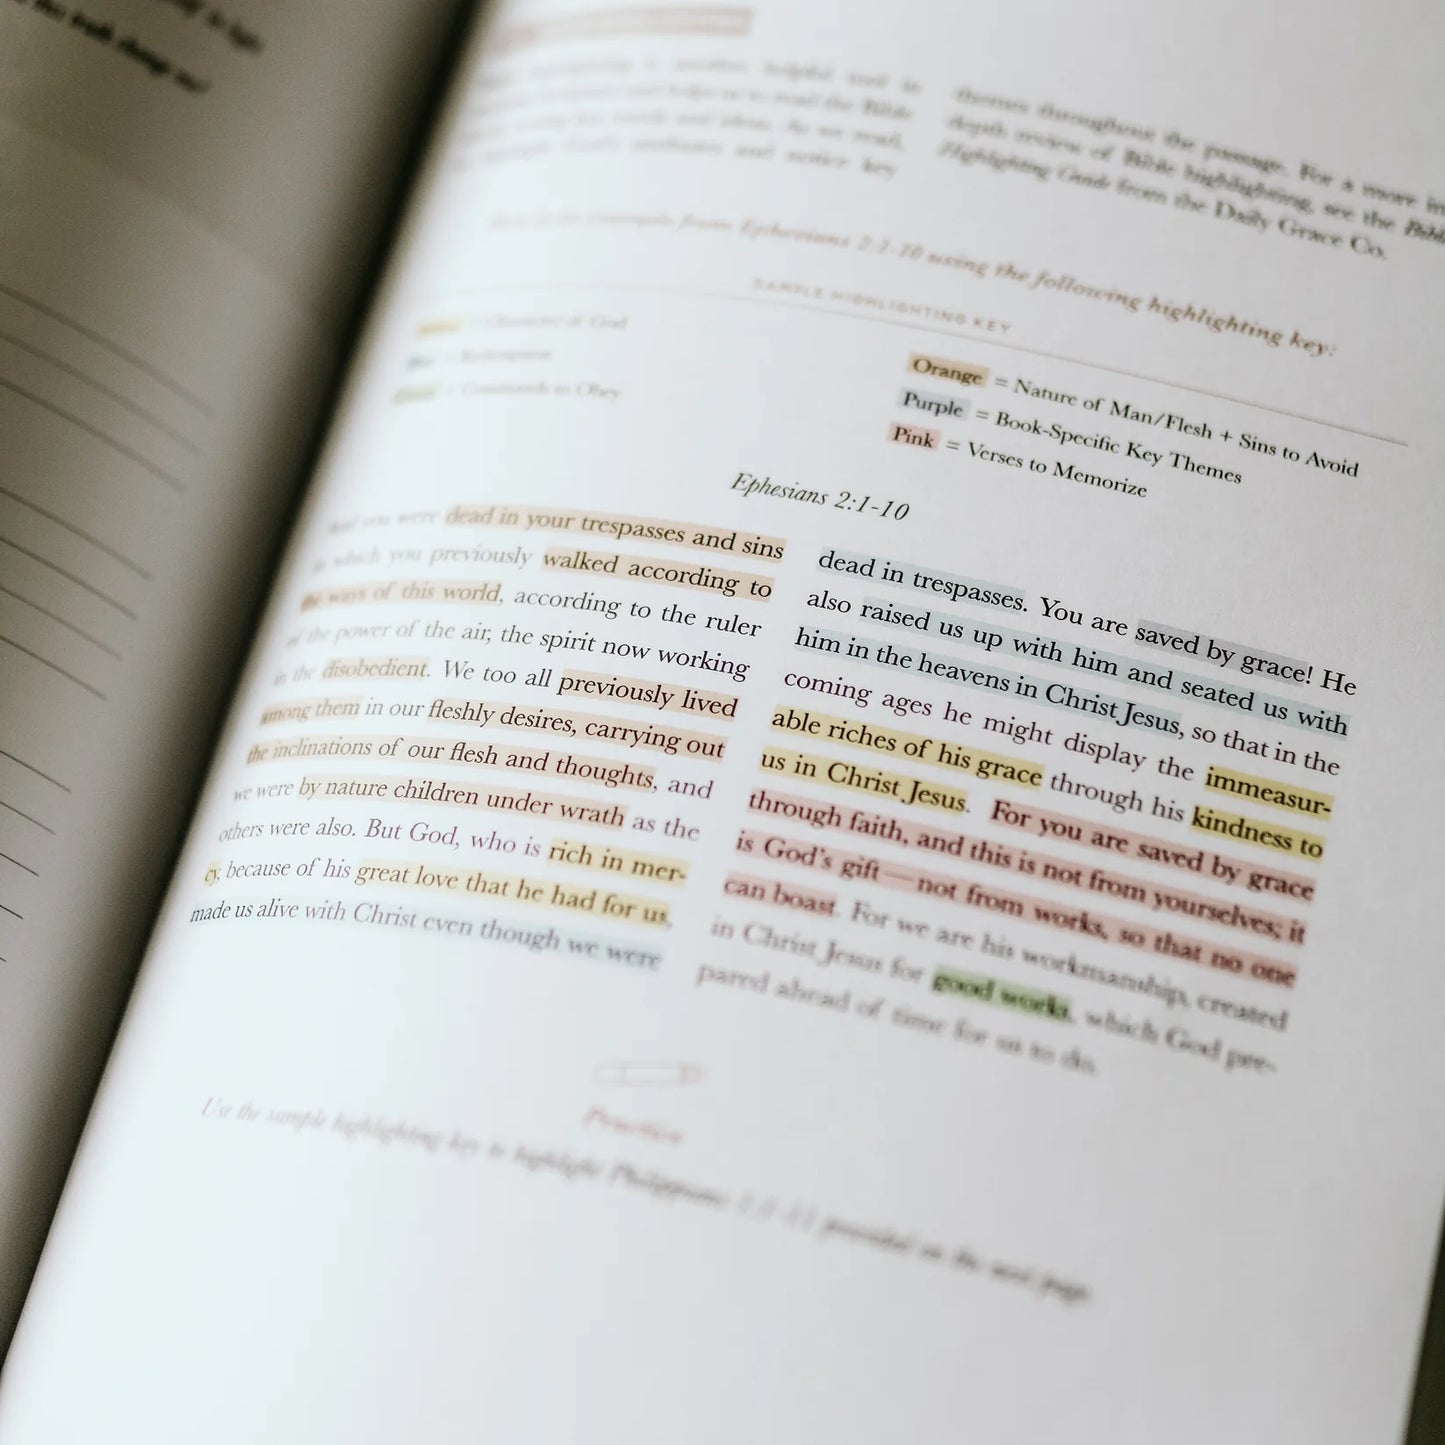 this truth change me?
themes throughout the passage. For a more in
depth review of Bible highlighting, see the Bibl
Highlighting Guide from the Daily Grace Co.
example from Ephesians 2:1-10 using the following highlighting key:
SAMPLE HIGHLIGHTING KEY
= Character of God
= Redemption
= Commands to Obey
Orange = Nature of Man/Flesh + Sins to Avoid
Purple = Book-Specific Key Themes
Pink = Verses to Memorize
Ephesians 2:1-10
And you were dead in your trespasses and sins
in which you previously walked according to
the ways of this world, according to the ruler
of the power of the air, the spirit now working
in the disobedient. We too all previously lived
among them in our fleshly desires, carrying out
the inclinations of our flesh and thoughts, and
we were by nature children under wrath as the
others were also. But God, who is rich in mer-
cy, because of his great love that he had for us,
made us alive with Christ even though we were
dead in trespasses. You are saved by grace! He
also raised us up with him and seated us with
him in the heavens in Christ Jesus, so that in the
coming ages he might display the immeasur-
able riches of his grace through his kindness to
us in Christ Jesus. For you are saved by grace
through faith, and this is not from yourselves; it
is God's gift—not from works, so that no one
can boast. For we are his workmanship, created
in Christ Jesus for good works, which God pre-
pared ahead of time for us to do.
Practice
Use the sample highlighting key to highlight Philippians provided on the next page.